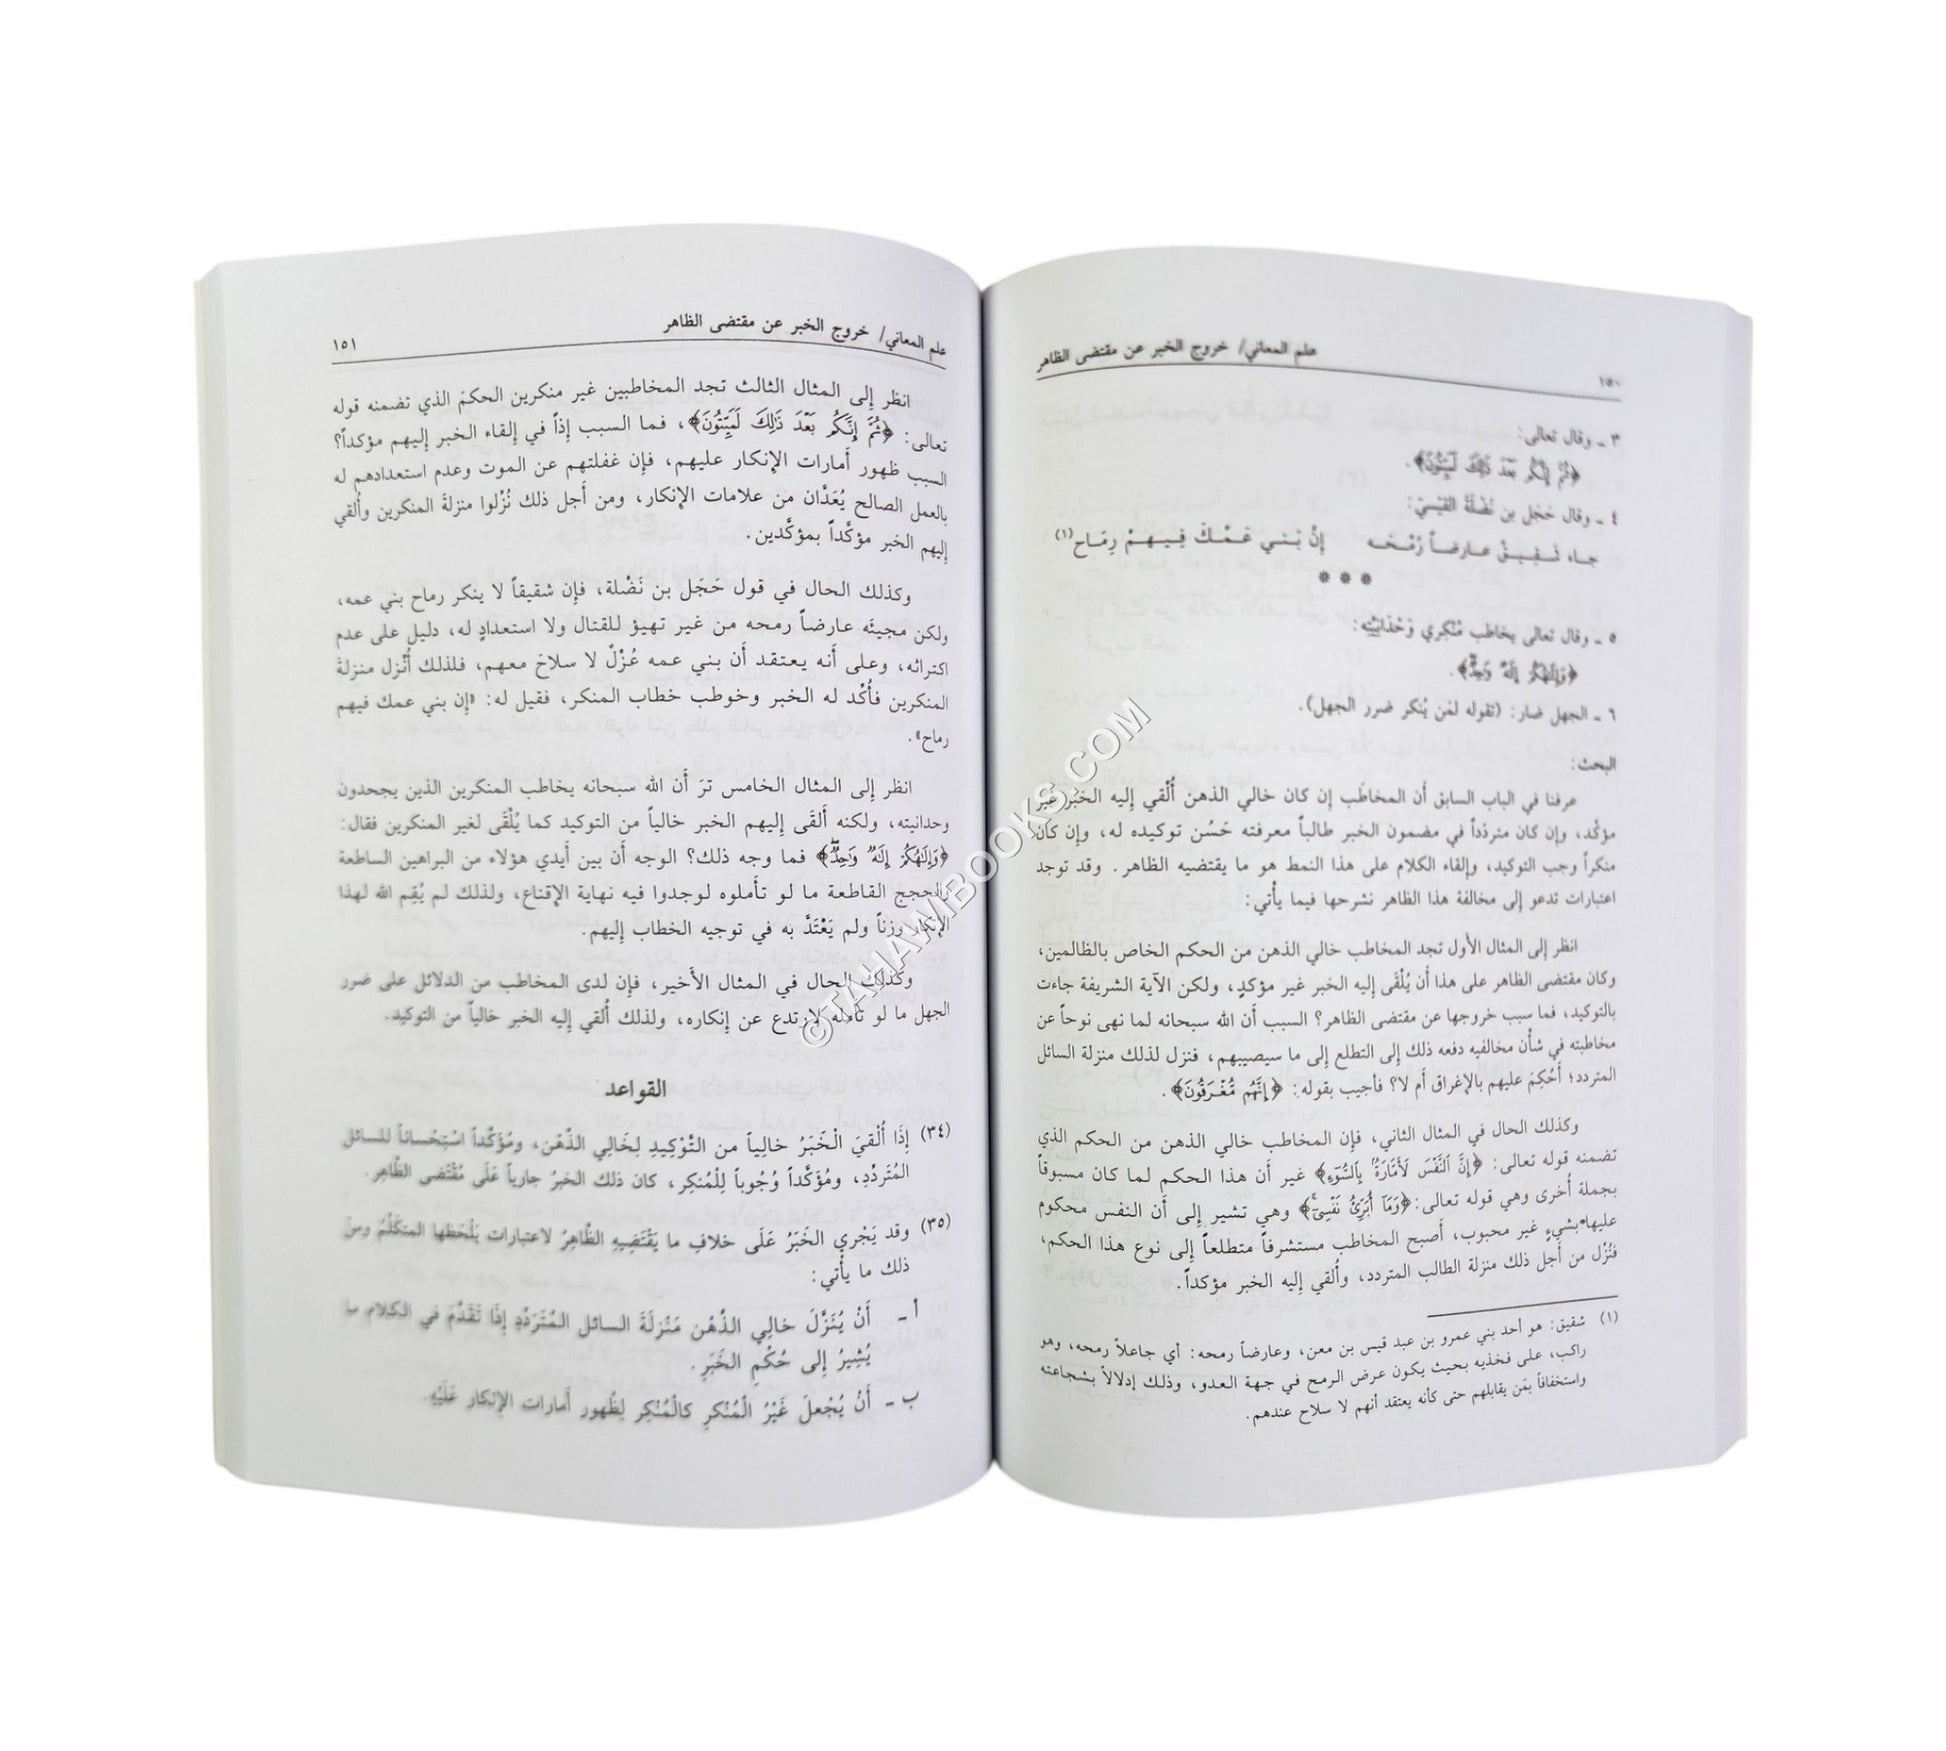 ١٥٠
علم المعاني/ خروج الخبر عن مقتضى الظاهر
٣ ـ وقال تعالى:
﴿ثُمَّ إِنَّكُم بَعْدَ ذَٰلِكَ لَمَيِّتُونَ﴾.
٤ ـ وقال حَجَل بن نَضْلَة القَيْسيّ:
جـاء شَـقِـيـقٌ عـارضـاً رُمْـحَـه إنّ بَـنـي عَـمّـكَ فِـيـهـمْ رِمَـاح(١)
* * *
٥ ـ وقال تعالى يخاطب مُنْكِري وَحْدَانِيَّتِه:
﴿وَإِلَٰهُكُمْ إِلَٰهٌ وَٰحِدٌ﴾.
٦ ـ الجهل ضار: (تقوله لمَن يُنكر ضرر الجهل).
البحث:
عرفنا في الباب السابق أن المخاطَب إن كان خالي الذهن أُلْقي إليه الخبر غير
مؤكَّد، وإن كان متردّداً في مضمون الخبر طالباً معرفته حَسُن توكيده له، وإن كان
منكراً وجب التوكيد، وإلقاء الكلام على هذا النمط هو ما يقتضيه الظاهر. وقد توجد
اعتبارات تدعو إلى مخالفة هذا الظاهر نشرحها فيما يأتي:
انظر إلى المثال الأول تجد المخاطب خالي الذهن من الحكم الخاص بالظالمين،
وكان مقتضى الظاهر على هذا أن يُلْقَى إليه الخبر غير مؤكدٍ، ولكن الآية الشريفة جاءت
بالتوكيد، فما سبب خروجها عن مقتضى الظاهر؟ السبب أن الله سبحانه لما نهى نوحاً عن
مخاطبته في شأن مخالفيه دفعه ذلك إلى التطلع إلى ما سيصيبهم، فنزل لذلك منزلة السائل
المتردد؛ أَحُكِمَ عليهم بالإغراق أم لا؟ فأجيب بقوله: ﴿إِنَّهُم مُّغْرَقُونَ﴾.
وكذلك الحال في المثال الثاني، فإن المخاطب خالي الذهن من الحكم الذي
تضمنه قوله تعالى: ﴿إِنَّ ٱلنَّفْسَ لَأَمَّارَةٌۢ بِٱلسُّوٓءِ﴾ غير أن هذا الحكم لما كان مسبوقاً
بجملة أُخرى وهي قوله تعالى:﴿وَمَآ أُبَرِّئُ نَفْسِىٓ﴾ وهي تشير إلى أن النفس محكوم
عليها بشيءٍ غير محبوب، أصبح المخاطب مستشرفاً متطلعاً إلى نوع هذا الحكم،
فنُزّل من أجل ذلك منزلة الطالب المتردد، وأُلقي إليه الخبر مؤكداً.
(١) شقيق: هو أحد بني عمرو بن عبد قيس بن معن، وعارضاً رمحه: أي جاعلاً رمحه، وهو
راكب، على فخذيه بحيث يكون عرض الرمح في جهة العدو، وذلك إدلالاً بشجاعته
واستخفافاً بمَن يقابلهم حتى كأنه يعتقد أنهم لا سلاح عندهم.
علم المعاني/ خروج الخبر عن مقتضى الظاهر
١٥١
انظر إلى المثال الثالث تجد المخاطبين غير منكرين الحكمَ الذي تضمنه قوله
تعالى: ﴿ثُمَّ إِنَّكُم بَعْدَ ذَٰلِكَ لَمَيِّتُونَ﴾، فما السبب إذاً في إلقاء الخبر إليهم مؤكداً؟
السبب ظهور أمارات الإنكار عليهم، فإن غفلتهم عن الموت وعدم استعدادهم له
بالعمل الصالح يُعَدَّان من علامات الإنكار، ومن أجل ذلك نُزّلوا منزلةَ المنكرين وأُلقي
إليهم الخبر مؤكَّداً بمؤكَّدين.
وكذلك الحال في قول حَجَل بن نَضْلة، فإن شقيقاً لا ينكر رماح بني عمه،
ولكن مجيئَه عارضاً رمحه من غير تهيؤ للقتال ولا استعدادٍ له، دليل على عدم
اكتراثه، وعلى أنه يعتقد أن بني عمه عُزْلٌ لا سلاحَ معهم، فلذلك أُنْزل منزلةَ
المنكرين فأُكّد له الخبر وخوطب خطاب المنكر، فقيل له: «إن بني عمك فيهم
رماح».
انظر إلى المثال الخامس ترَ أن الله سبحانه يخاطب المنكرين الذين يجحدون
وحدانيته، ولكنه ألقَى إليهم الخبر خالياً من التوكيد كما يُلْقَى لغير المنكرين فقال:
﴿وَإِلَٰهُكُمْ إِلَٰهٌ وَٰحِدٌ﴾ فما وجه ذلك؟ الوجه أن بين أيدي هؤلاء من البراهين الساطعة
والحجج القاطعة ما لو تأملوه لوجدوا فيه نهاية الإقناع، ولذلك لم يُقِم الله لهذا
الإنكار وزناً ولم يَعْتَدَّ به في توجيه الخطاب إليهم.
وكذلك الحال في المثال الأخير، فإن لدى المخاطب من الدلائل على ضرر
الجهل ما لو تأمله لارتدع عن إنكاره، ولذلك أُلقي إليه الخبر خالياً من التوكيد.
القواعد
(٣٤) إذَا أُلْقيَ الْخَبَرُ خالِياً من التَّوْكِيدِ لِخَالِي الذّهْن، ومُؤَكَّداً اسْتِحْساناً للسائل
المُتَردّدِ، ومُؤَكَّداً وُجُوباً لِلْمُنكِر، كان ذلك الخبرُ جارياً عَلَى مُقْتَضى الظَّاهِر.
(٣٥) وقد يَجْري الخَبَرُ عَلَى خلافِ ما يَقْتَضِيهِ الظَّاهِرُ لاعتبارات يَلْحَظها المتكَلّمُ ومنْ
ذلك ما يأْتي:
أ ـ أَنْ يُنَزَّلَ خالِي الذّهْن مَنْزلَةَ السائل المُتَرَدّدِ إذَا تَقَدَّمَ في الكلام ما
يُشِيرُ إلى حُكْمِ الخَبَرِ.
ب ـ أَنْ يُجْعلَ غَيْرُ الْمُنْكرِ كالْمُنْكِر لِظُهور أَمارات الإنْكار عَلَيْهِ.
©TAHAWIBOOKS.COM